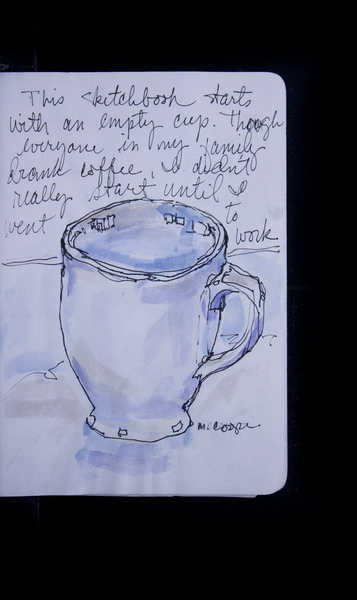 This sketchbook starts
with an empty cup. Though
everyone in my family
drank coffee, I didn't
really start until I
went to
work
M. Cooper